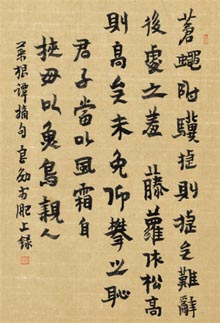 蒼蠅附驥捷則捷矣難辭
後處之羞藤蘿依松高
則高矣未免仰攀之恥
君子當以風霜自
挾毋以魚鳥親人
菜根譚摘句 於肥上錄